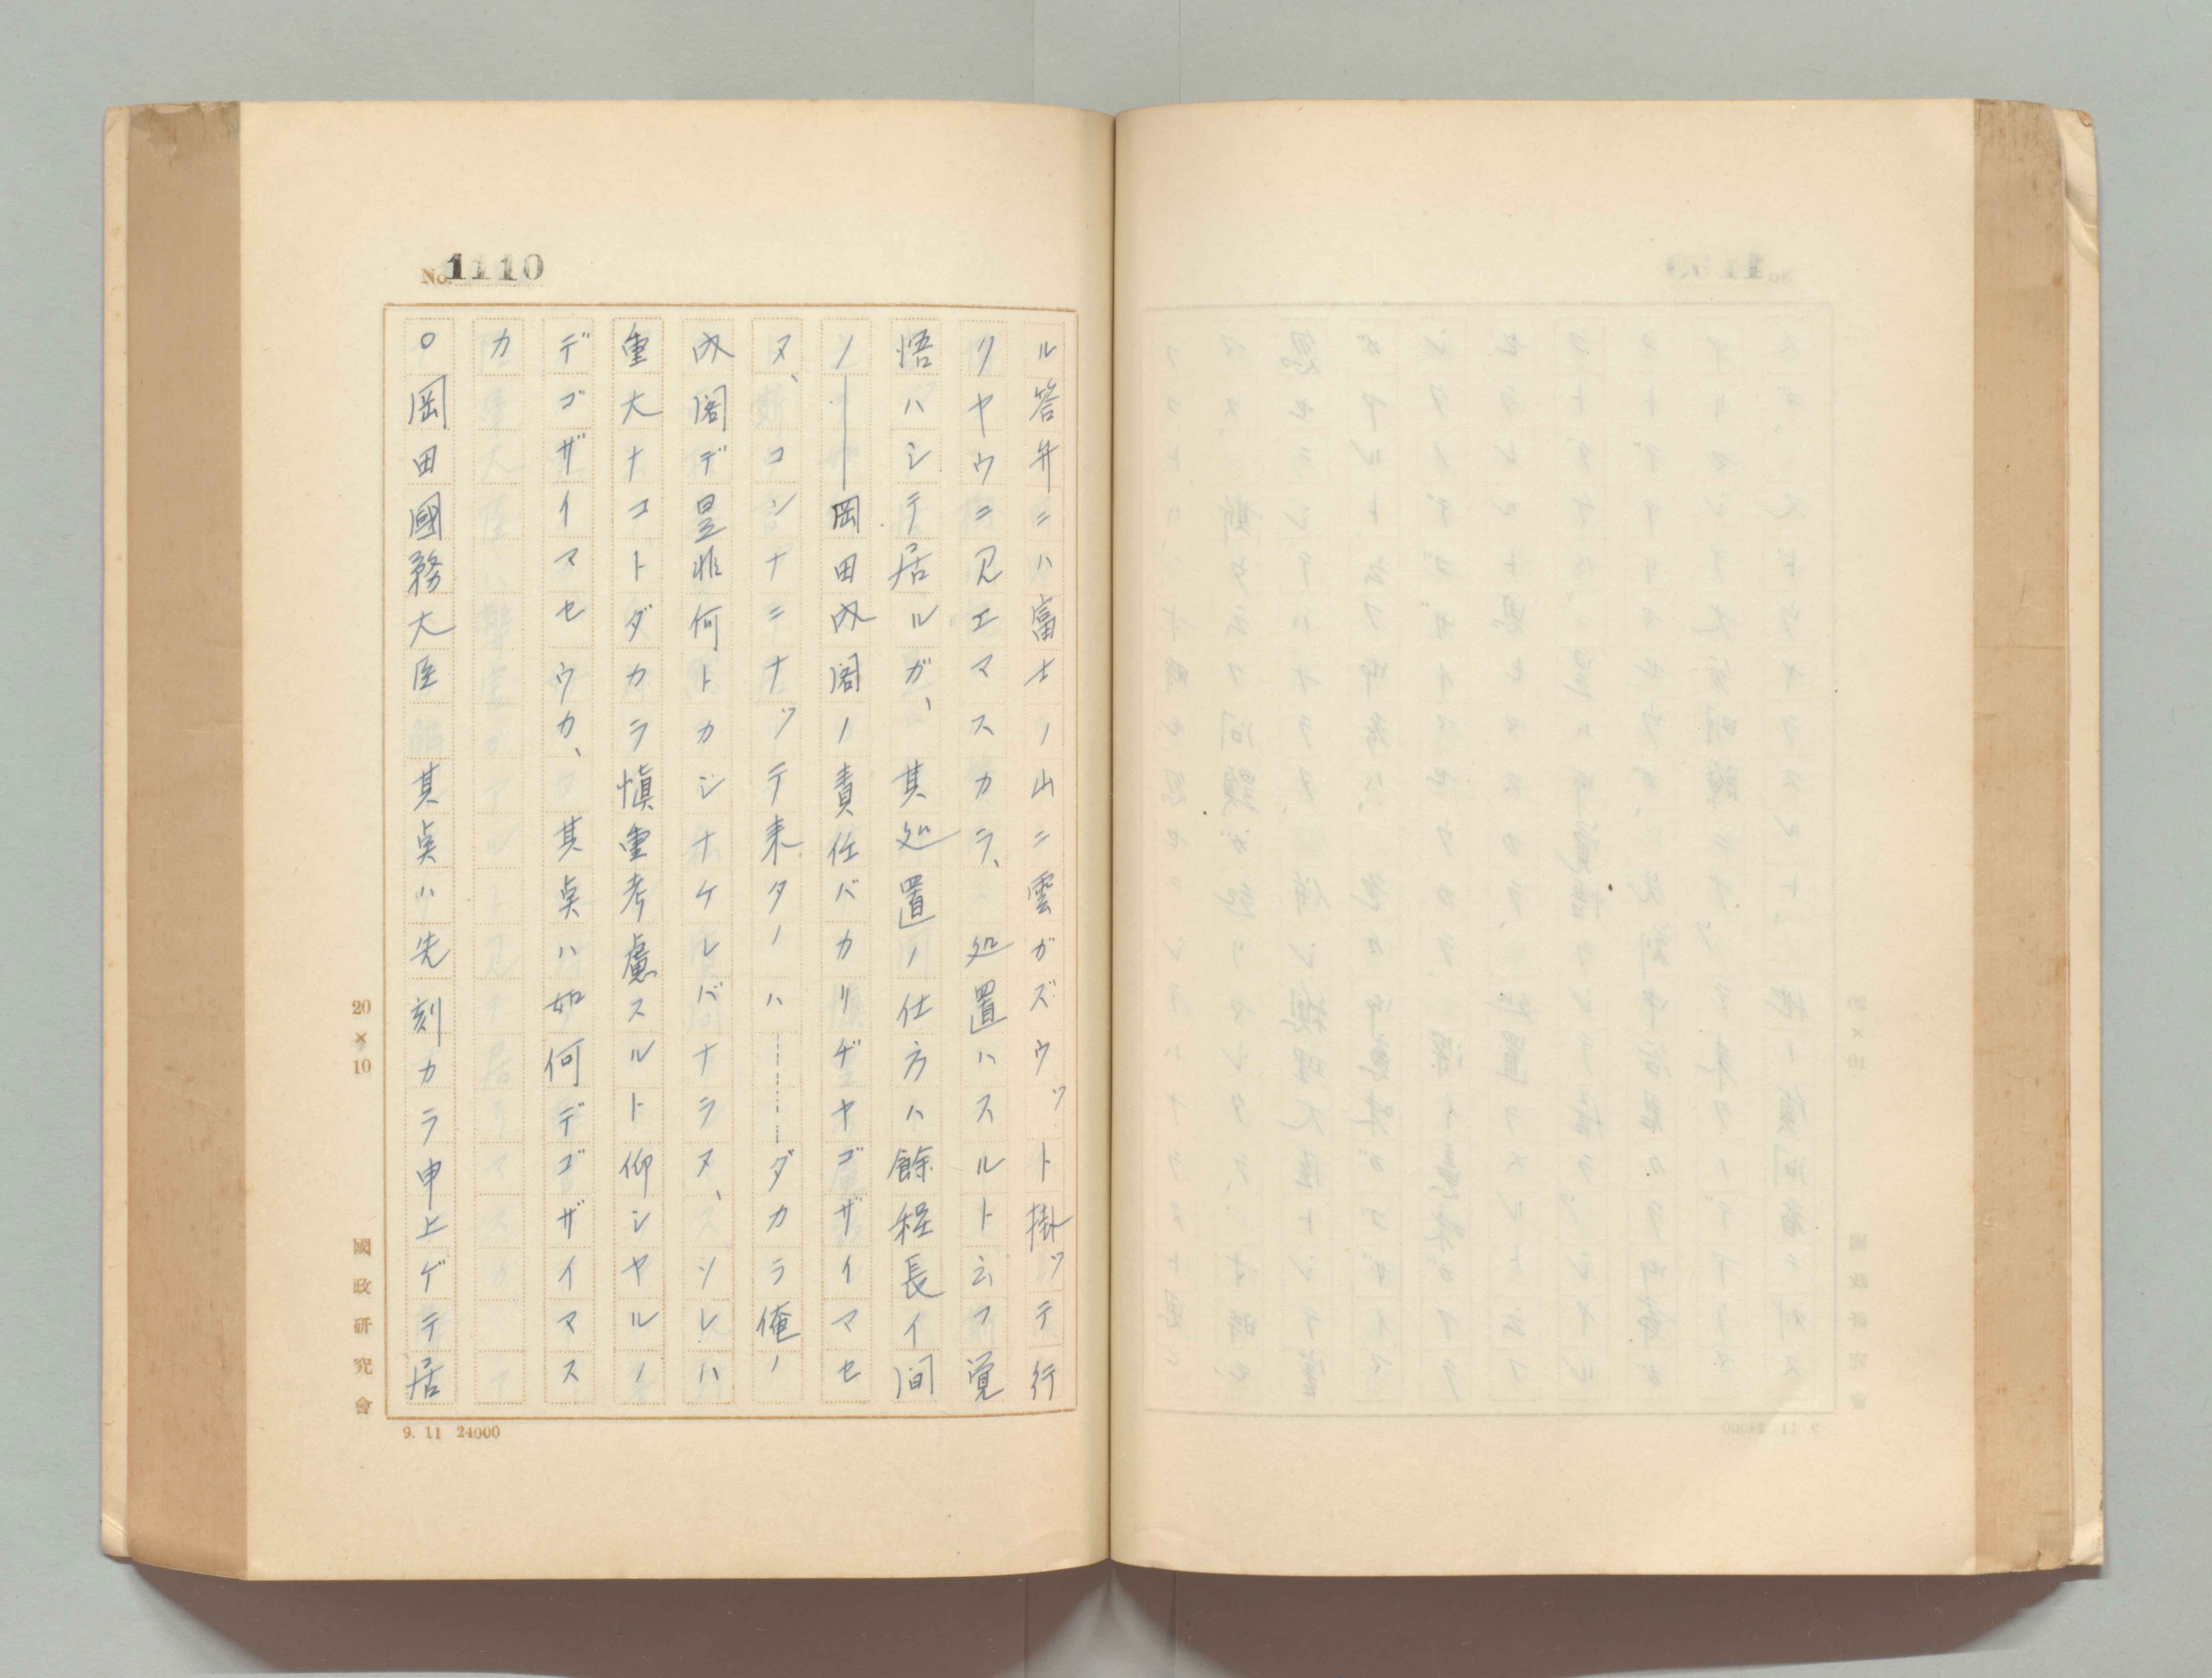 No. 1110
ル答弁ニハ富士ノ山ニ雲ガズウット掛ッテ行
リヤウニ見エマスカラ、処置ハスルト云フ覚
悟ハシテ居ルガ、其処置ノ仕方ハ餘程長イ間
ノ――岡田内閣ノ責任バカリヂヤゴザイマセ
ヌ、コンナニナッテ来タノハ……ダカラ俺ノ
内閣デ是非何トカシナケレバナラヌ、ソレハ
重大ナコトダカラ慎重考慮スルト仰シヤルノ
デゴザイマセウカ、其点ハ如何デゴザイマス
カ
○岡田國務大臣 其点ハ先刻カラ申上ゲテ居
20×10
國政研究會
9. 11 24000